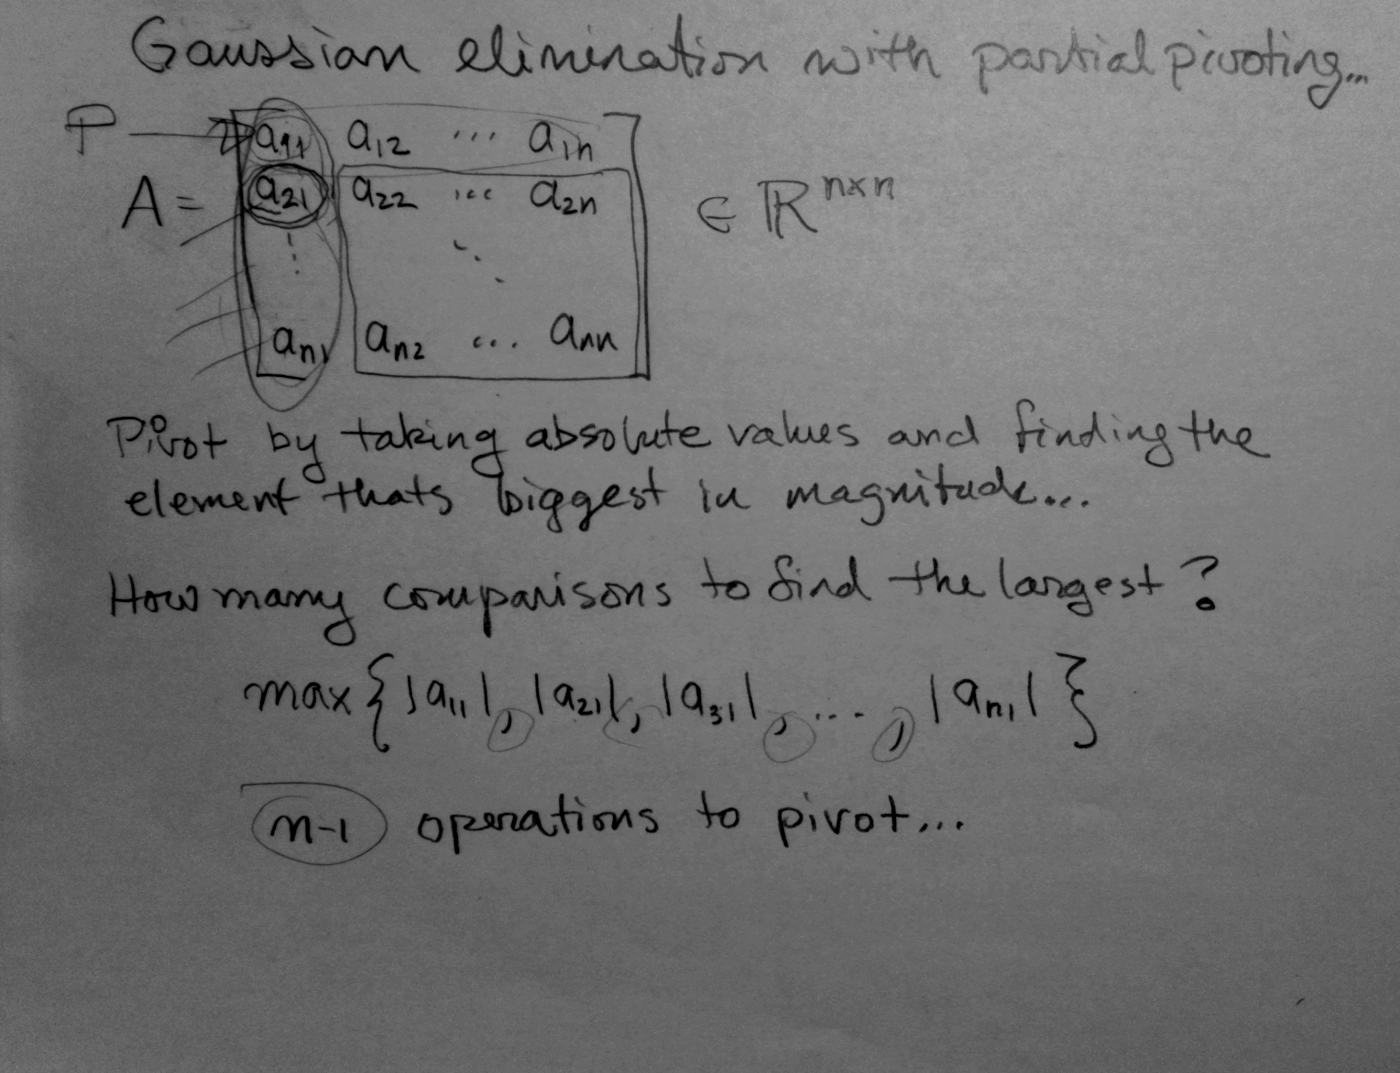 Gaussian elimination with partial pivoting...
P → a₁₁ a₁₂ ... a₁ₙ
A = a₂₁ a₂₂ ... a₂ₙ ∈ ℝⁿˣⁿ
⋮ ⋱
aₙ₁ aₙ₂ ... aₙₙ
Pivot by taking absolute values and finding the
element thats biggest in magnitude...
How many comparisons to find the largest?
max{|a₁₁|, |a₂₁|, |a₃₁|, ..., |aₙ₁|}
n-1 operations to pivot...